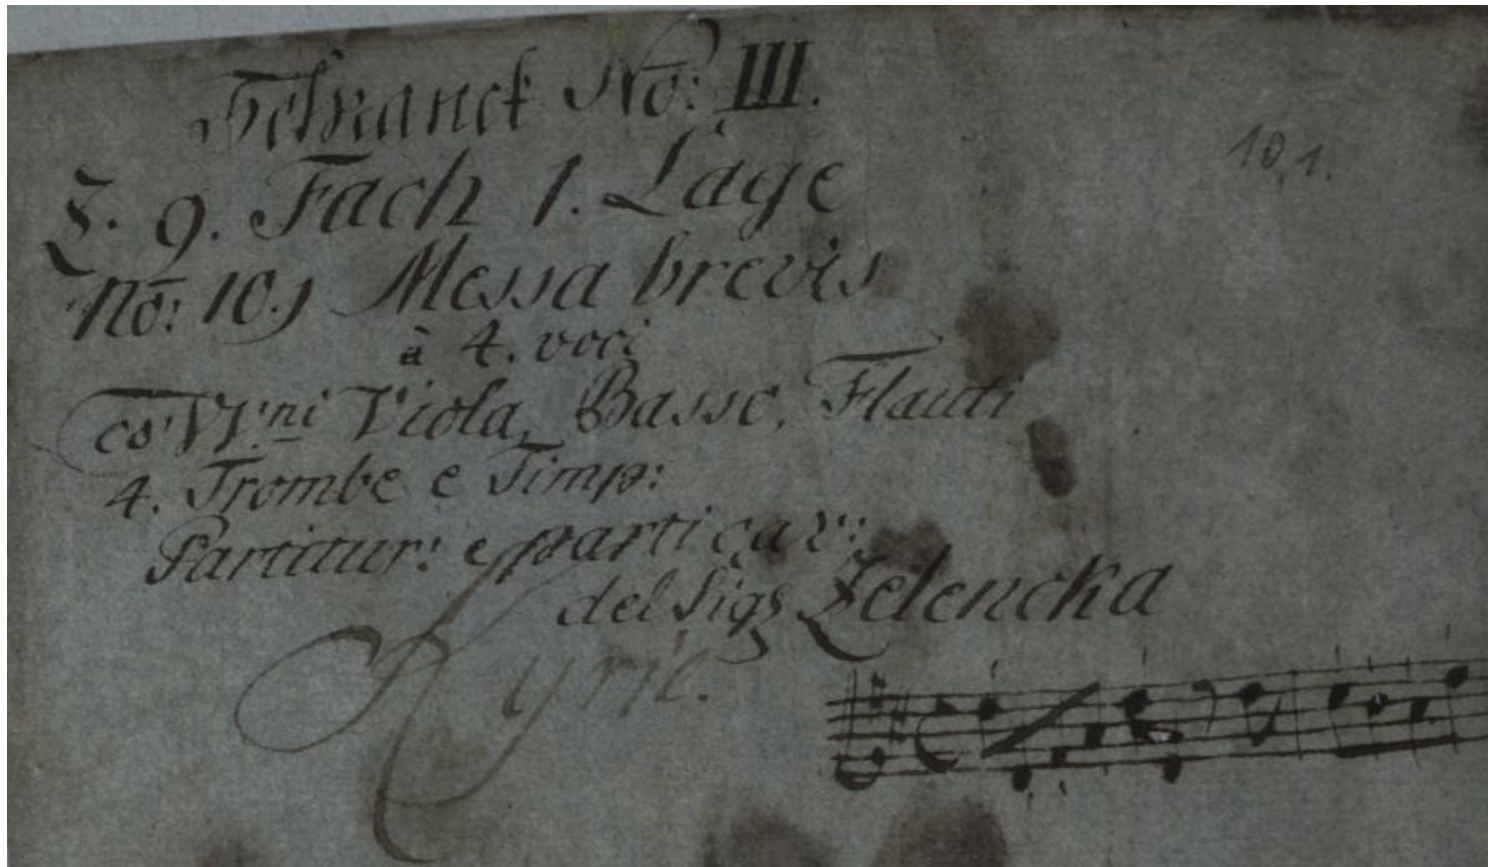 Schranck No: III.
10,1.
Z. 9. Fach 1. Lage
No: 10.) Messa brevis
à 4. voci
co' VVni Viola, Basso, Flauti
4. Trombe e Timp:
Partitur: e parti cav:
del Sigr Zelencka
Kyrie.